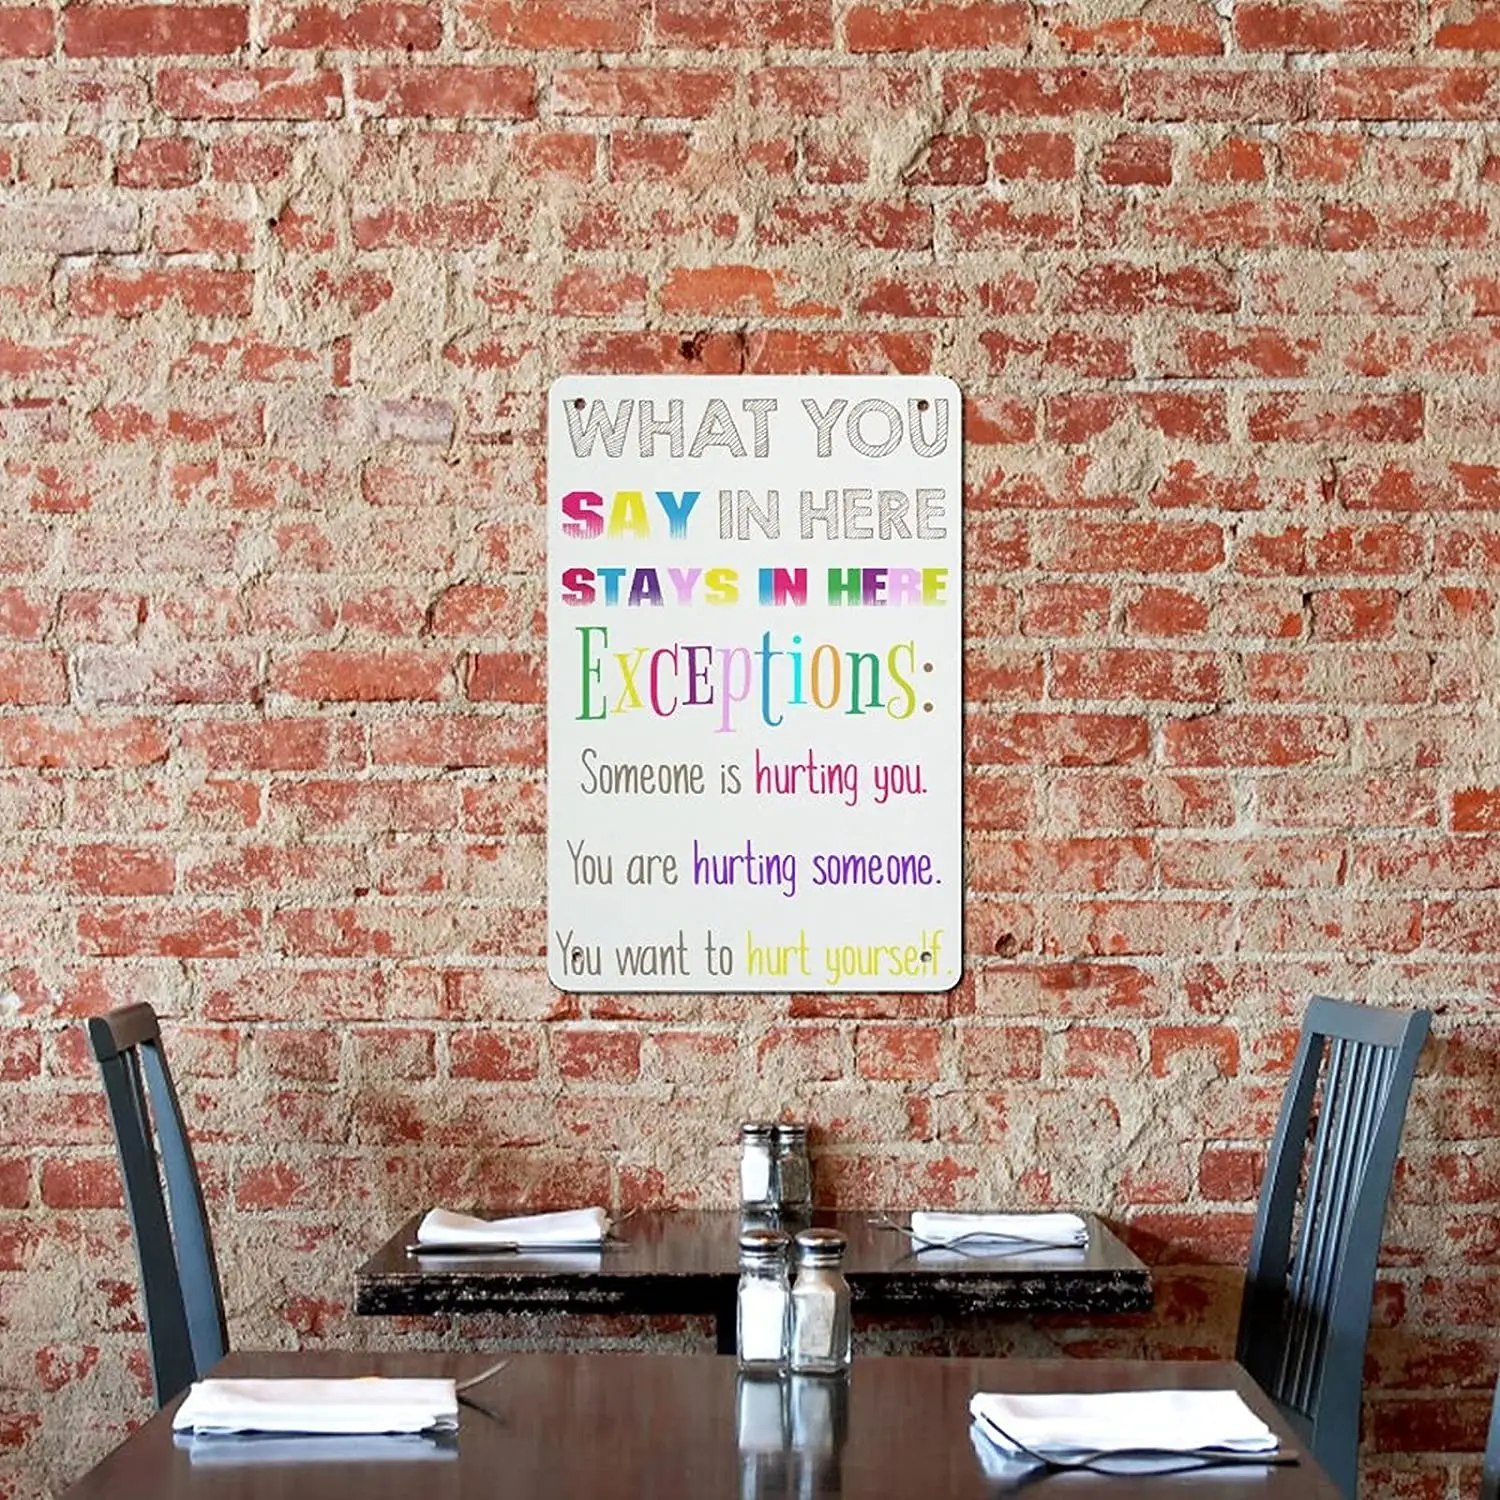 WHAT YOU
SAY IN HERE
STAYS IN HERE
Exceptions:
Someone is hurting you.
You are hurting someone.
You want to hurt yourself.